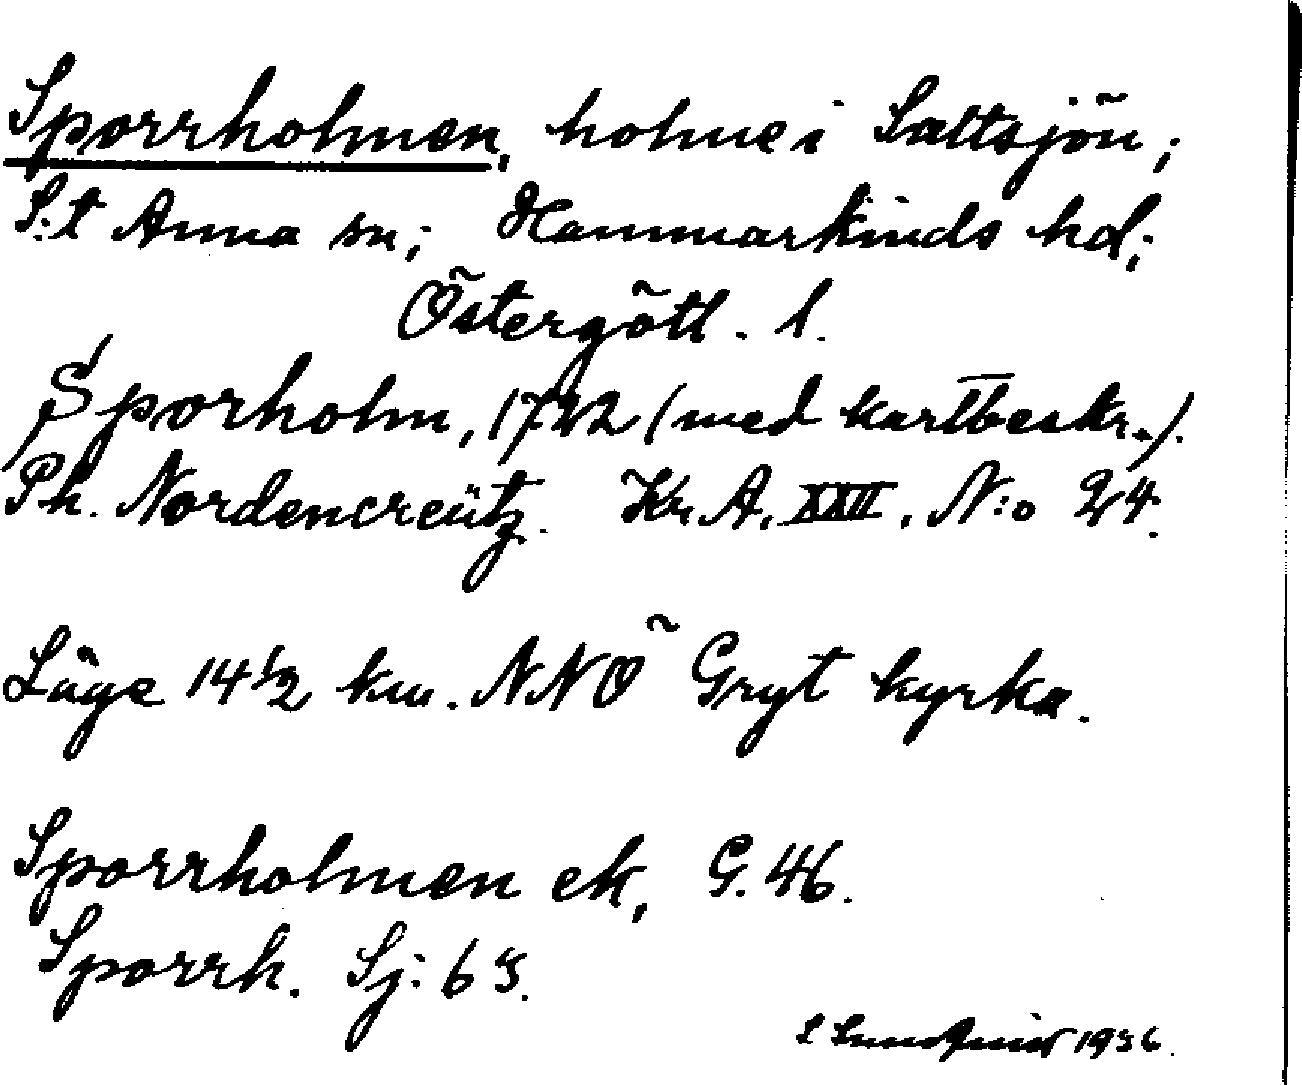 Sporrholmen, holme i Saltsjön;
S:t Anna sn; Hammarkinds hd;
Östergötl. l.
Sporholm, 1722 (med kartbeskr.).
Ph. Nordencreütz. Kr. A. XXII. N:o 24.
Läge 14 1/2 km. NNO Gryt kyrka.
Sporrholmen ek, G. 46.
Sporrh. Sj: 65.
S Lundquist 1936.